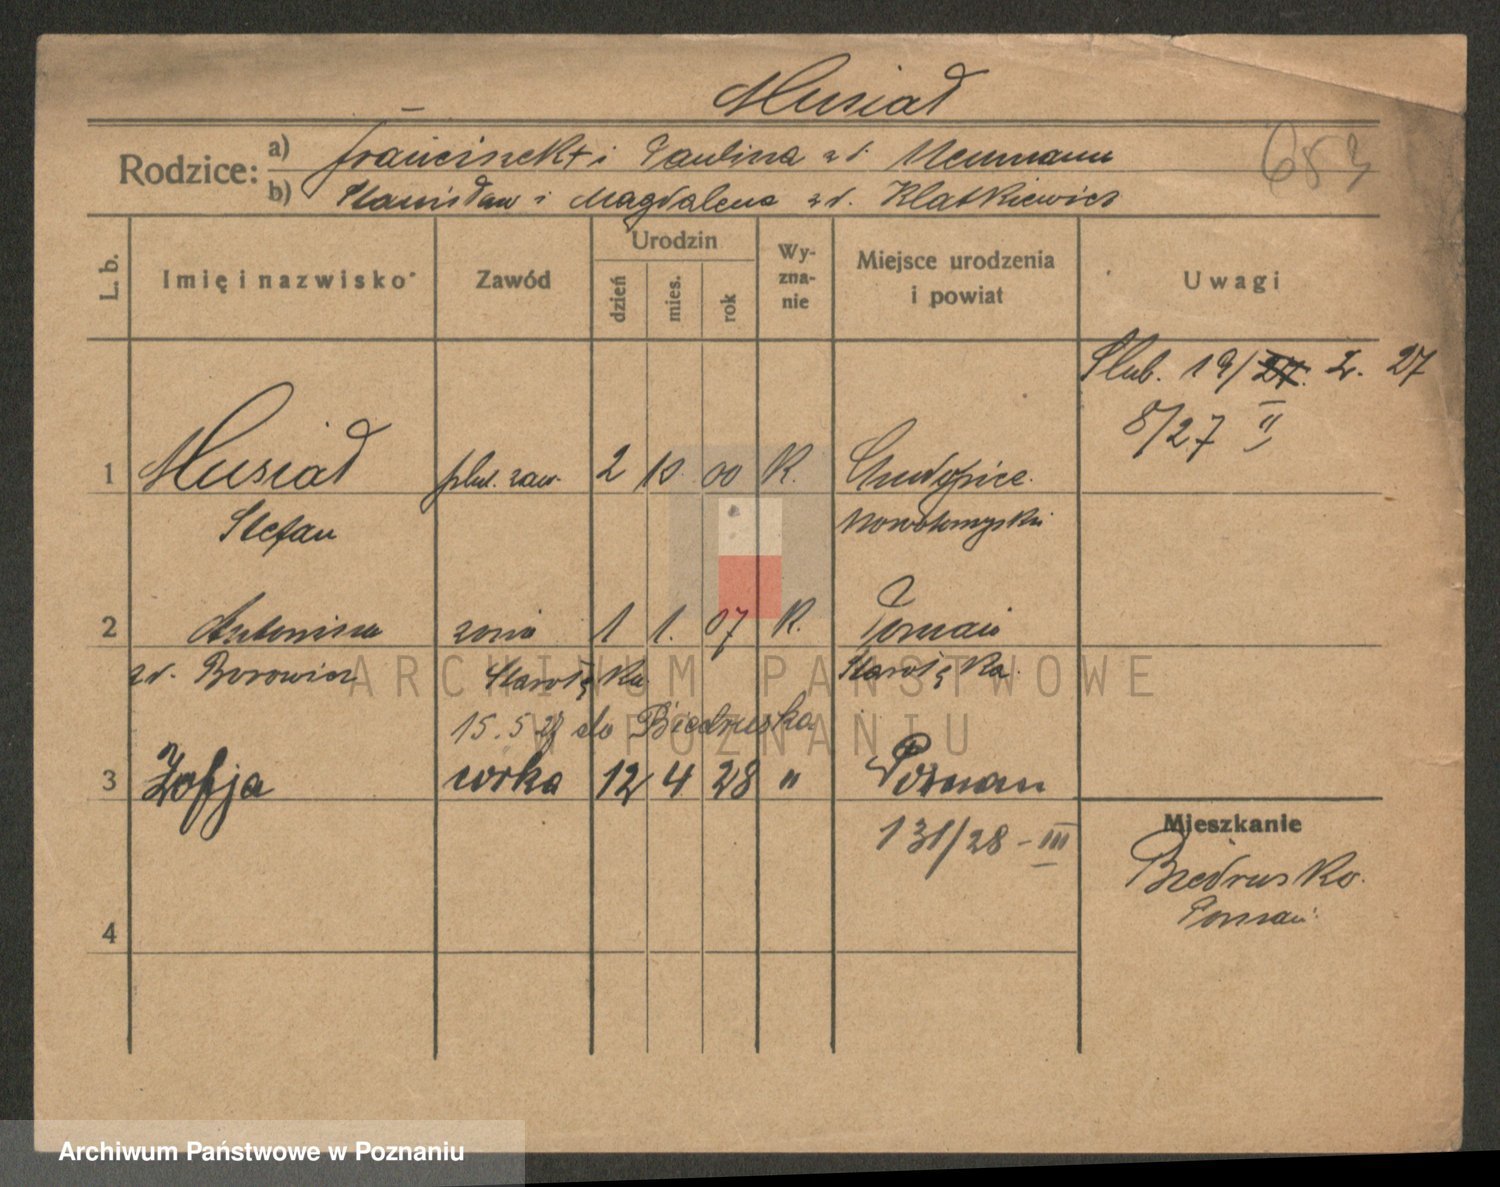 Musiał
653
Rodzice: a) Franciszek + i Paulina zd. Neumann
b) Stanisław i Magdalena zd. Klatkiewicz
L. b. Imię i nazwisko Zawód Urodzin dzień mies. rok Wy-zna-nie Miejsce urodzenia i powiat Uwagi
Ślub. 19/27. 2. 27
8/27 II
1 Musiał plut. zaw. 2 10 00 K.
Stefan Nowotomyski
2 Antonina żona 1 1. 07 K. Poznań
zd. Borowicz Starołęka Starołęka
15.5 28 do Biedruska
3 Zofja córka 12 4 28 " Poznań
131/28 - III
Mieszkanie
Biedrusko.
Poznań
4
ARCHIWUM PAŃSTWOWE
W POZNANIU
Archiwum Państwowe w Poznaniu